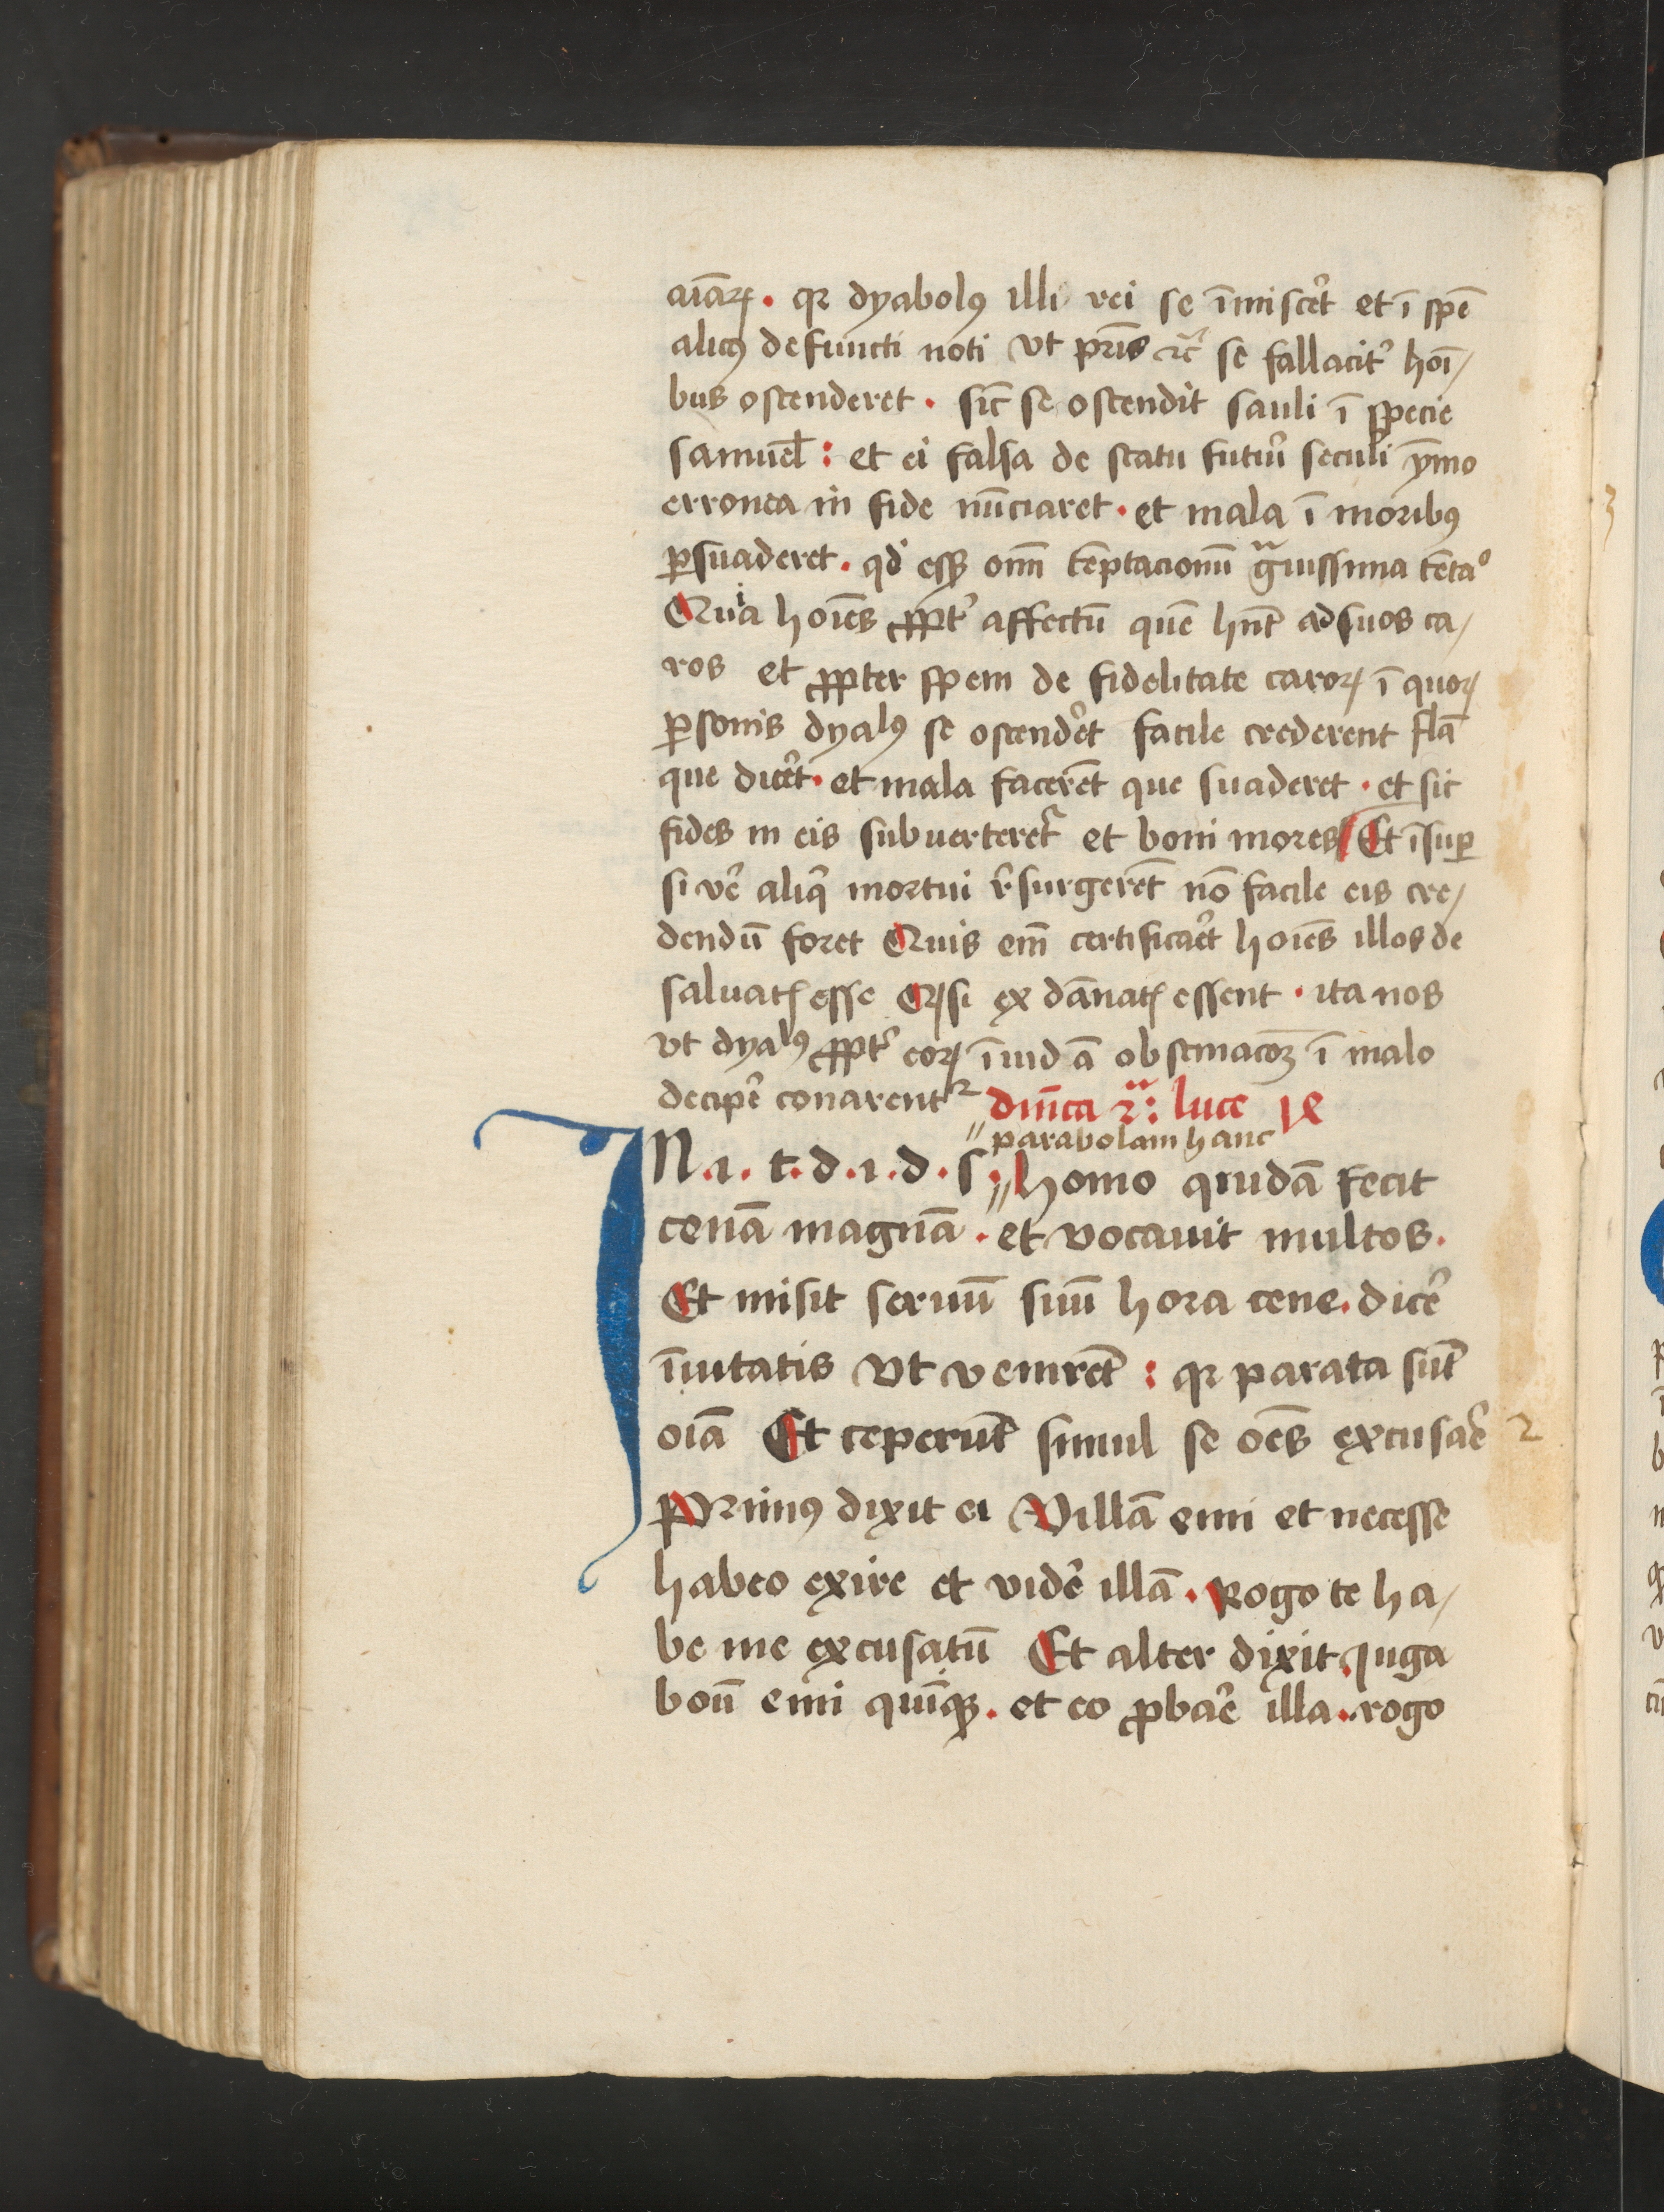 aīaꝝ. qꝛ dyabolꝰ illi rei se īmisce͛t et ī spē
alicꝰ defuncti noti vt pr̄is ⁊c̄ se fallacit͛ hoī/
bus ostenderet. sic̄ se ostendit sauli ī specie
samuel̄: et ei falsa de statu futur̄ seculi ȳmo
erronea in fide nūciaret. et mala ī moribꝰ
ꝑsuaderet. qđ esꝫ om̄ tēptacionū gͣuissima tēta⁰
Quia hoīes ꝓpt͛ affectū quē hn̄t ad suos ca/
ros et ꝓpter spem de fidelitate caroꝝ ī quoꝝ
ꝑsonis dyalꝰ se ostende͛t facile crederent fl̄a
que dice͛t. et mala facerēt que suaderet. et sic
fides in eis subuerteret᷑ et boni mores Et īsuꝑ
si ve͛ aliq̄ mortui r͛surgerēt nō facile eis cre/
dendū foret Quis em̄ certifica͛et hoīes illos de
saluatꝭ esse Qꝛ si ex dānatꝭ essent. ita nos
vt dyalꝰ ꝓpt͛ eoꝝ īuidā obstinacōꝫ ī malo
decipe͛ conarent᷑ dn̄ica 2ᵃ: luce 1e
parabolam hanc
IN. i. t. d. i. d. s. homo quidā fecit
cenā magnā. et vocauit multos.
Et misit seruū suū hora cene. dice͛
īuitatis vt venirēt: qꝛ parata sūt
oīa Et ceperūt simul se oēs excusa͛e
2
Primꝰ dixit ei Villā emi et necesse
habeo exire et vide͛ illā. Rogo te ha/
be me excusatū Et alter dixit. Juga
boū emi quīqꝫ. et eo ꝓba͛e illa. rogo